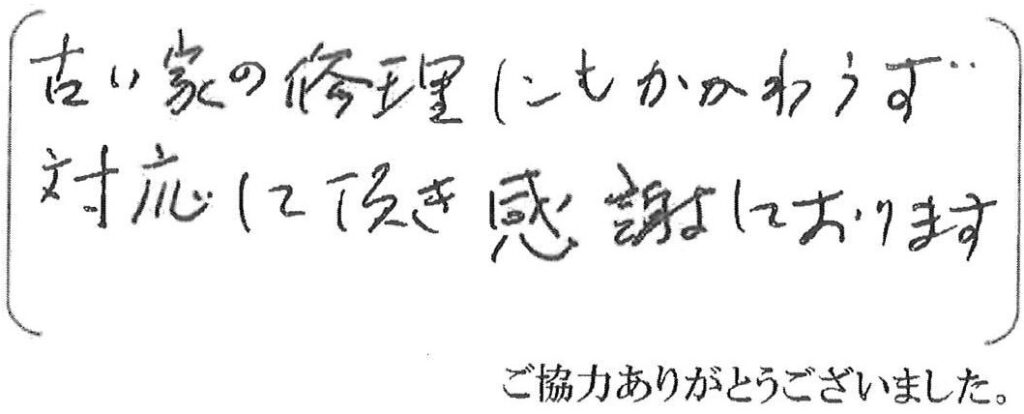 古い家の修理にもかかわらず
対応して頂き感謝しております
ご協力ありがとうございました。